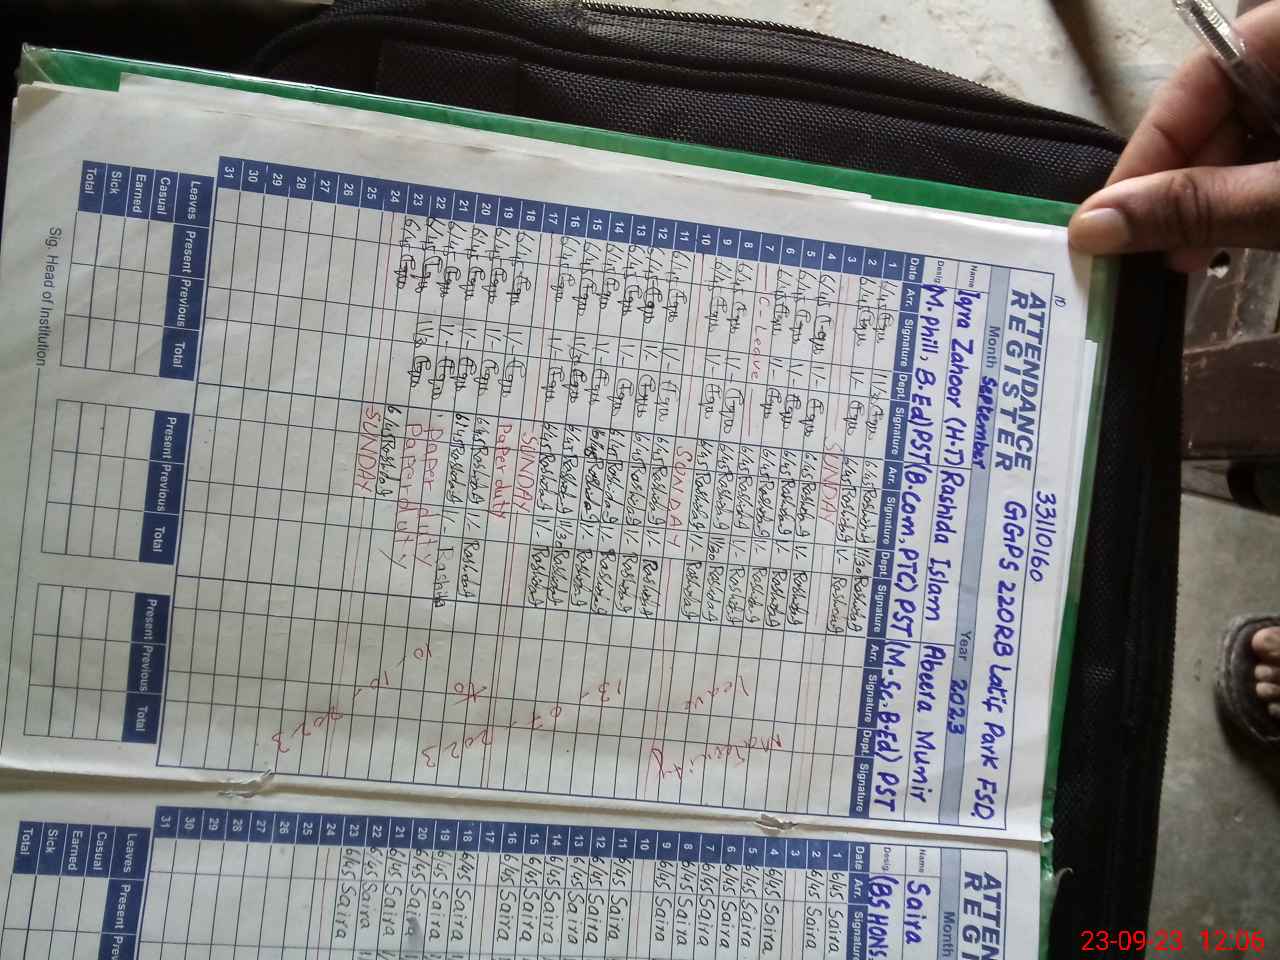 10
ATTENDANCE REGISTER
33110160
GGPS 220RB Latif Park FSD.
Month September Year 2023
Name Iqra Zahoor (H.T) Rashida Islam Abeera Mumir
Desig. M.Phill, B.Ed) PST (B.Com, PTC) PST (M.Sc. B.Ed) PST
Date Arr. Signature Dept. Signature Arr. Signature Dept. Signature Arr. Signature Dept. Signature
1 6/45 Iqra 11/30 Iqra 6/45 Rashida 11/30 Rashida
2 6/45 Iqra 1/- Iqra 6/45 Rashida 1/- Rashida
3 SUNDAY
4 6/45 Iqra 1/- Iqra 6/45 Rashida 1/- Rashida
5 6/45 Iqra 1/- Iqra 6/45 Rashida 1/- Rashida
6 6/45 Iqra 1/- Iqra 6/45 Rashida 1/- Rashida
7 C-Leave 6/45 Rashida 1/- Rashida
8 6/45 Iqra 1/- Iqra 6/45 Rashida 11/30 Rashida
9 6/45 Iqra 1/- Iqra 6/45 Rashida 1/- Rashida
10 SUNDAY
11 6/45 Iqra 1/- Iqra 6/45 Rashida 1/- Rashida
12 6/45 Iqra 1/- Iqra 6/45 Rashida 1/- Rashida
13 6/45 Iqra 1/- Iqra 6/45 Rashida 1/- Rashida
14 6/45 Iqra 1/- Iqra 6/45 Rashida 1/- Rashida
15 6/45 Iqra 11/30 Iqra 6/45 Rashida 11/30 Rashida
16 6/45 Iqra 1/- Iqra 6/45 Rashida 1/- Rashida
17 SUNDAY
18 6/45 Iqra 1/- Iqra Paper duty
19 6/45 Iqra 1/- Iqra 6/45 Rashida 1/- Rashida
20 6/45 Iqra 1/- Iqra 6/45 Rashida 1/- Rashida
21 6/45 Iqra 1/- Iqra Paper duty
22 6/45 Iqra 11/30 Iqra Paper duty
23 6/45 Rashida
24 SUNDAY
25
26
27
28
29
30
31
Maternity
Leave
13 07 2023
to
10 2023
Leaves Present Previous Total Present Previous Total Present Previous Total
Casual
Earned
Sick
Total
Sig. Head of Institution
ATTEN
REGI
Month
Name Saira
Desig. (BS HONS.
Date Arr. Signature
1 6/45 Saira
2 6/45 Saira
3
4 6/45 Saira
5 6/45 Saira
6 6/45 Saira
7 6/45 Saira
8 6/45 Saira
9 6/45 Saira
10
11 6/45 Saira
12 6/45 Saira
13 6/45 Saira
14 6/45 Saira
15 6/45 Saira
16 6/45 Saira
17
18 6/45 Saira
19 6/45 Saira
20 6/45 Saira
21 6/45 Saira
22 6/45 Saira
23 6/45 Saira
24
25
26
27
28
29
30
31
Leaves Present Prev
Casual
Earned
Sick
Total
23-09-23 12:06